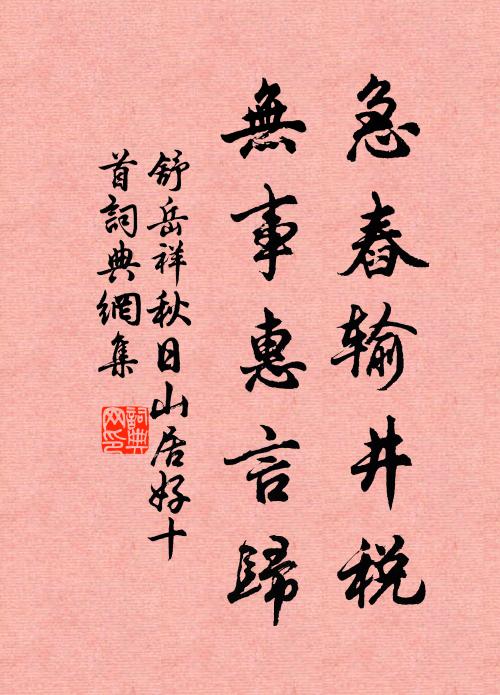 急舂输井税
無事惠言歸
舒岳祥秋日山居好十
首詞典網集
詞典
网印